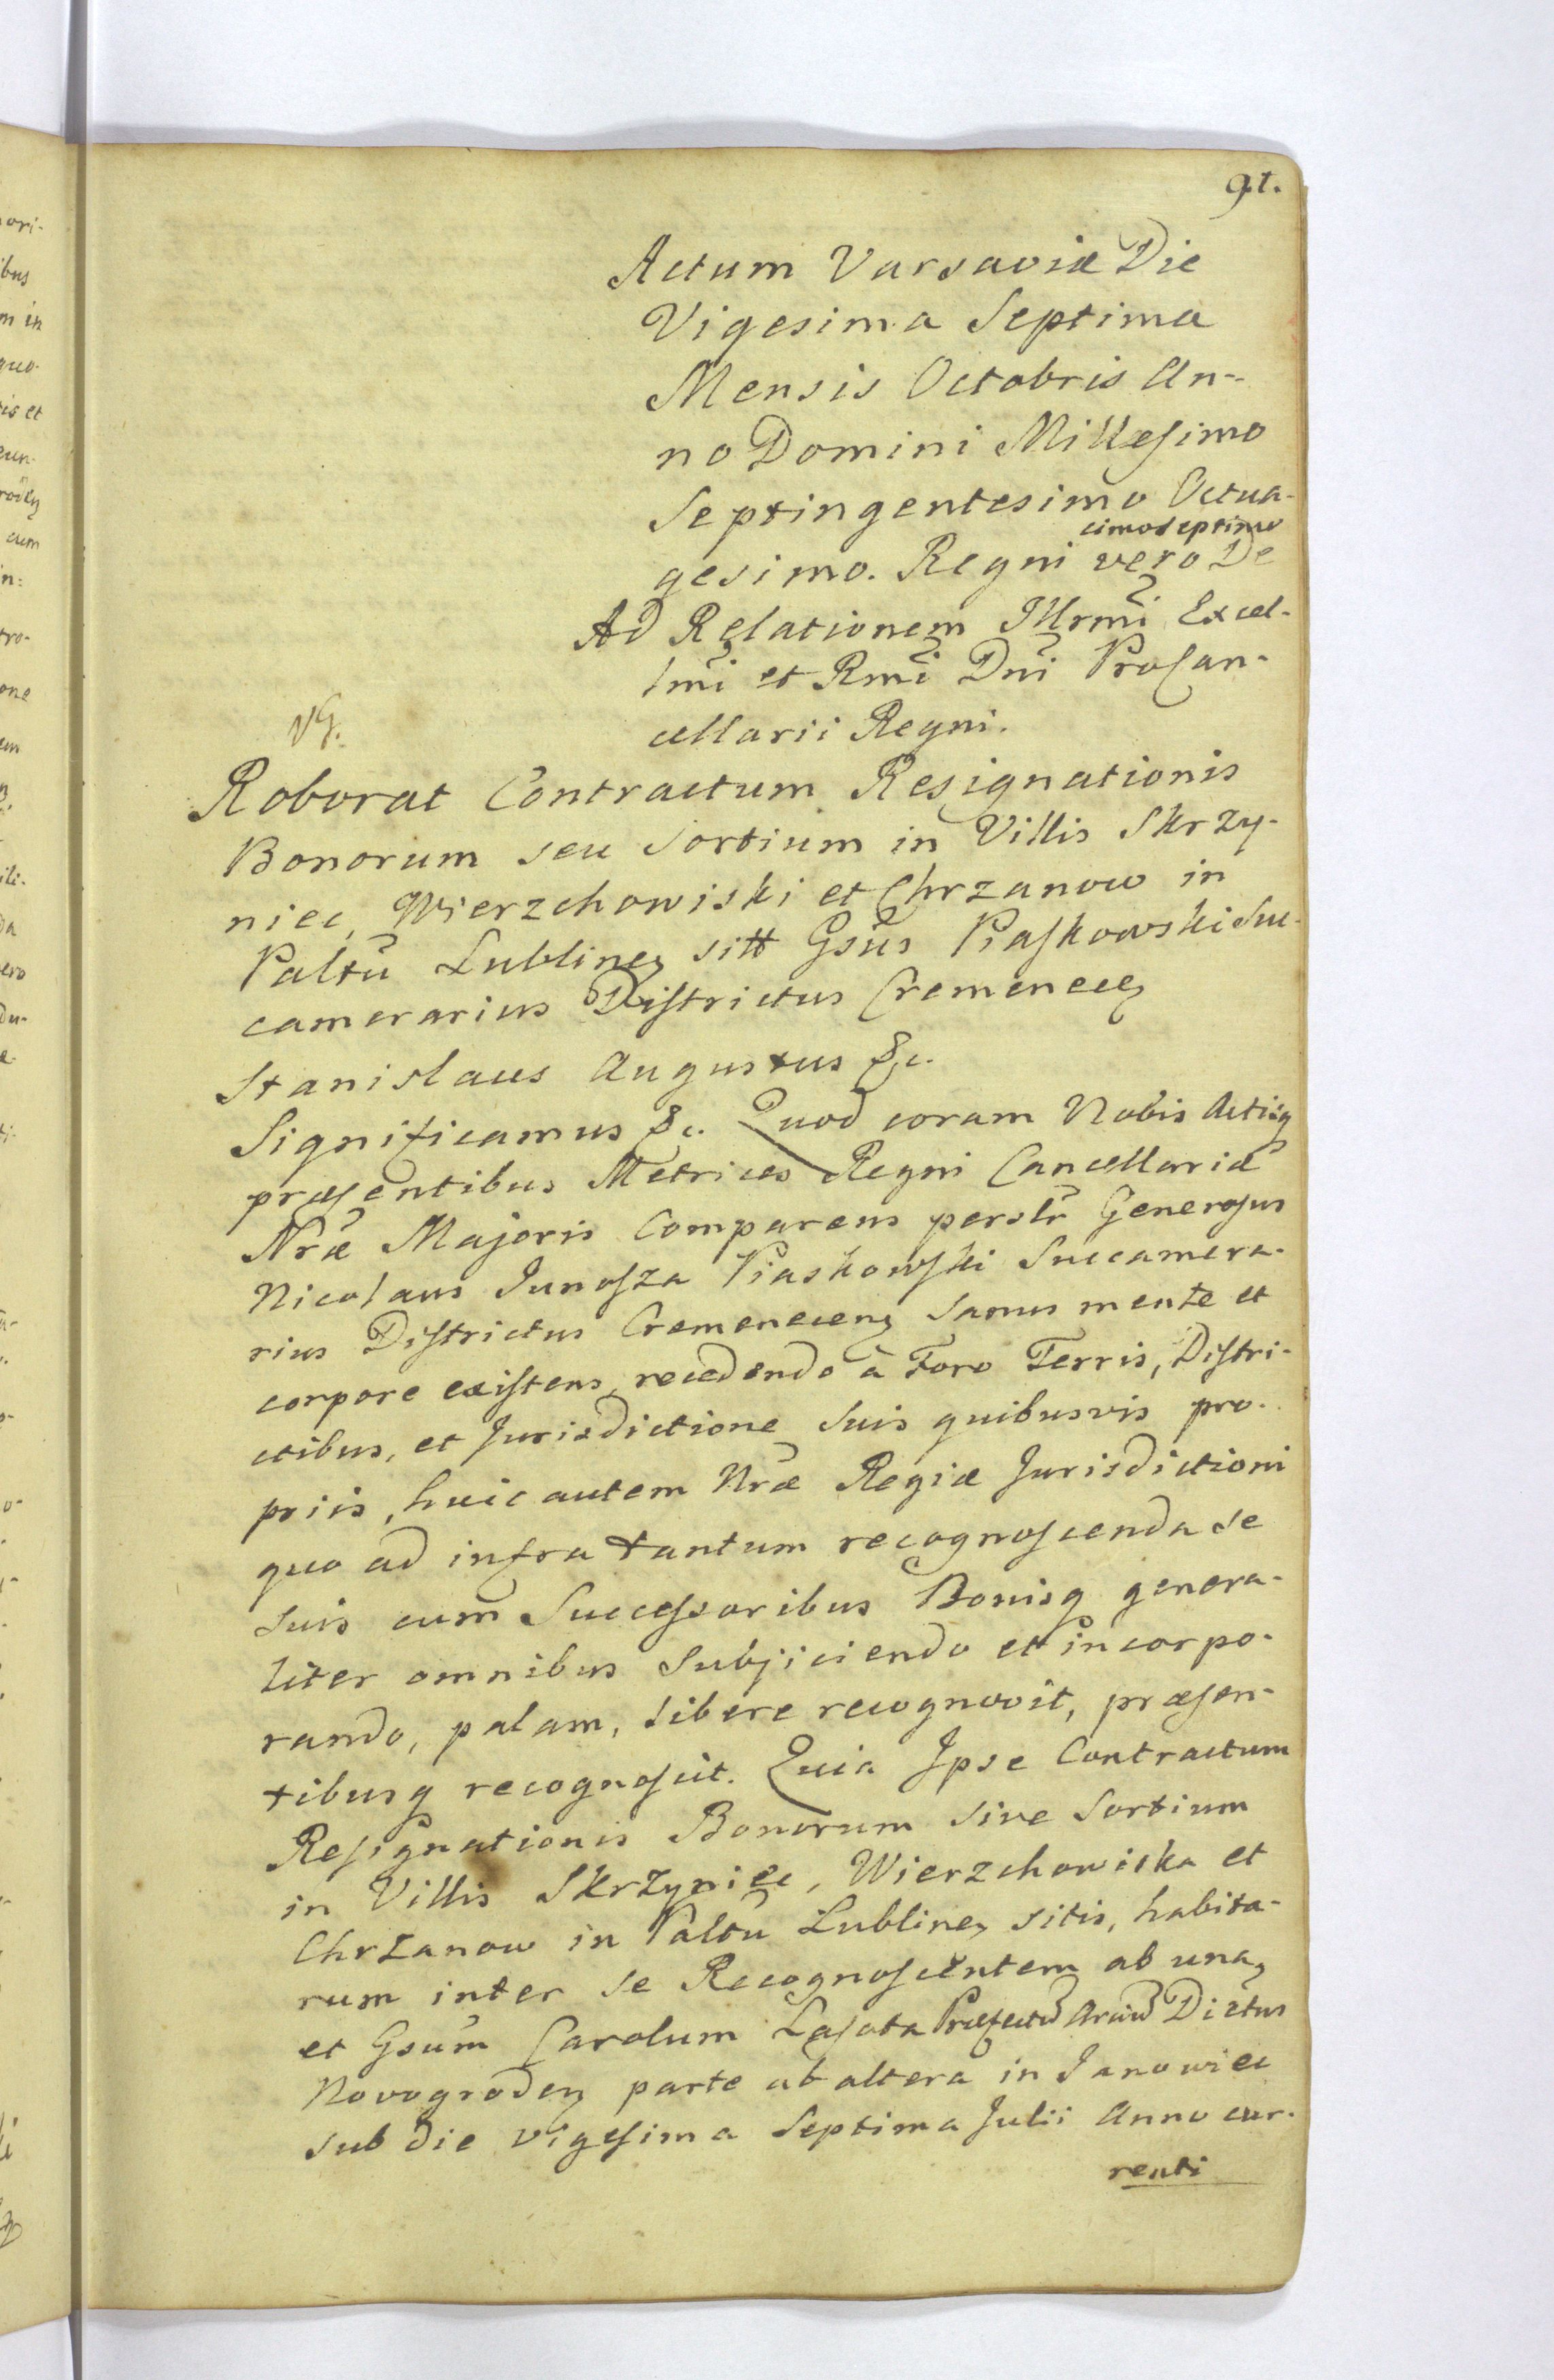 91.
Actum Varsaviæ Die
Vigesima Septima
Mensis Octobris An-
no Domini Millesimo
Septingentesimo Octua-
cimoseptimo
gesimo. Regni vero De
Ad Relationem Illrmi Excel-
lmi et Rmi Dni ProCan-
cellarii Regni.
NG.
Roborat Contractum Resignationis
Bonorum seu Sortium in Villis Skrzy-
niec, Wierzchowiski et Chrzanow in
Paltu Lublinen sitt Gsus Piaskowski Suc-
camerarius Districtus Cremenecen
Stanislaus Augustus &c.
Significamus &c. Quod coram Nobis Actisq
præsentibus Metrices Regni Cancellariæ
Nræ Majoris Comparens perslr Generosus
Nicolaus Junosza Piaskowski Succamera-
rius Districtus Cremenecen Sanus mente et
corpore existens, recedendo à Foro Terris, Distri-
ctibus, et Jurisdictione Suis quibusvis pro-
priis, huic autem Nræ Regiæ Jurisdictioni
quo ad infra tantum recognoscenda se
Suis cum Successoribus Bonisq genera-
liter omnibus Subjiciendo et incorpo-
rando, palam, libere recognovit, præsen-
tibusq recognoscit. Quia Ipse Contractum
Resignationis Bonorum Sive Sortium
in Villis Skrzyniec, Wierzchowiska et
Chrzanow in Paltu Lublinen sitis, habita-
rum inter se Recognoscentem ab una,
et Gsum Carolum Lasota Præfectum Arcium Dictus
Novogroden parte ab altera in Janowiec
sub die vigesima Septima Julii Anno cur-
renti